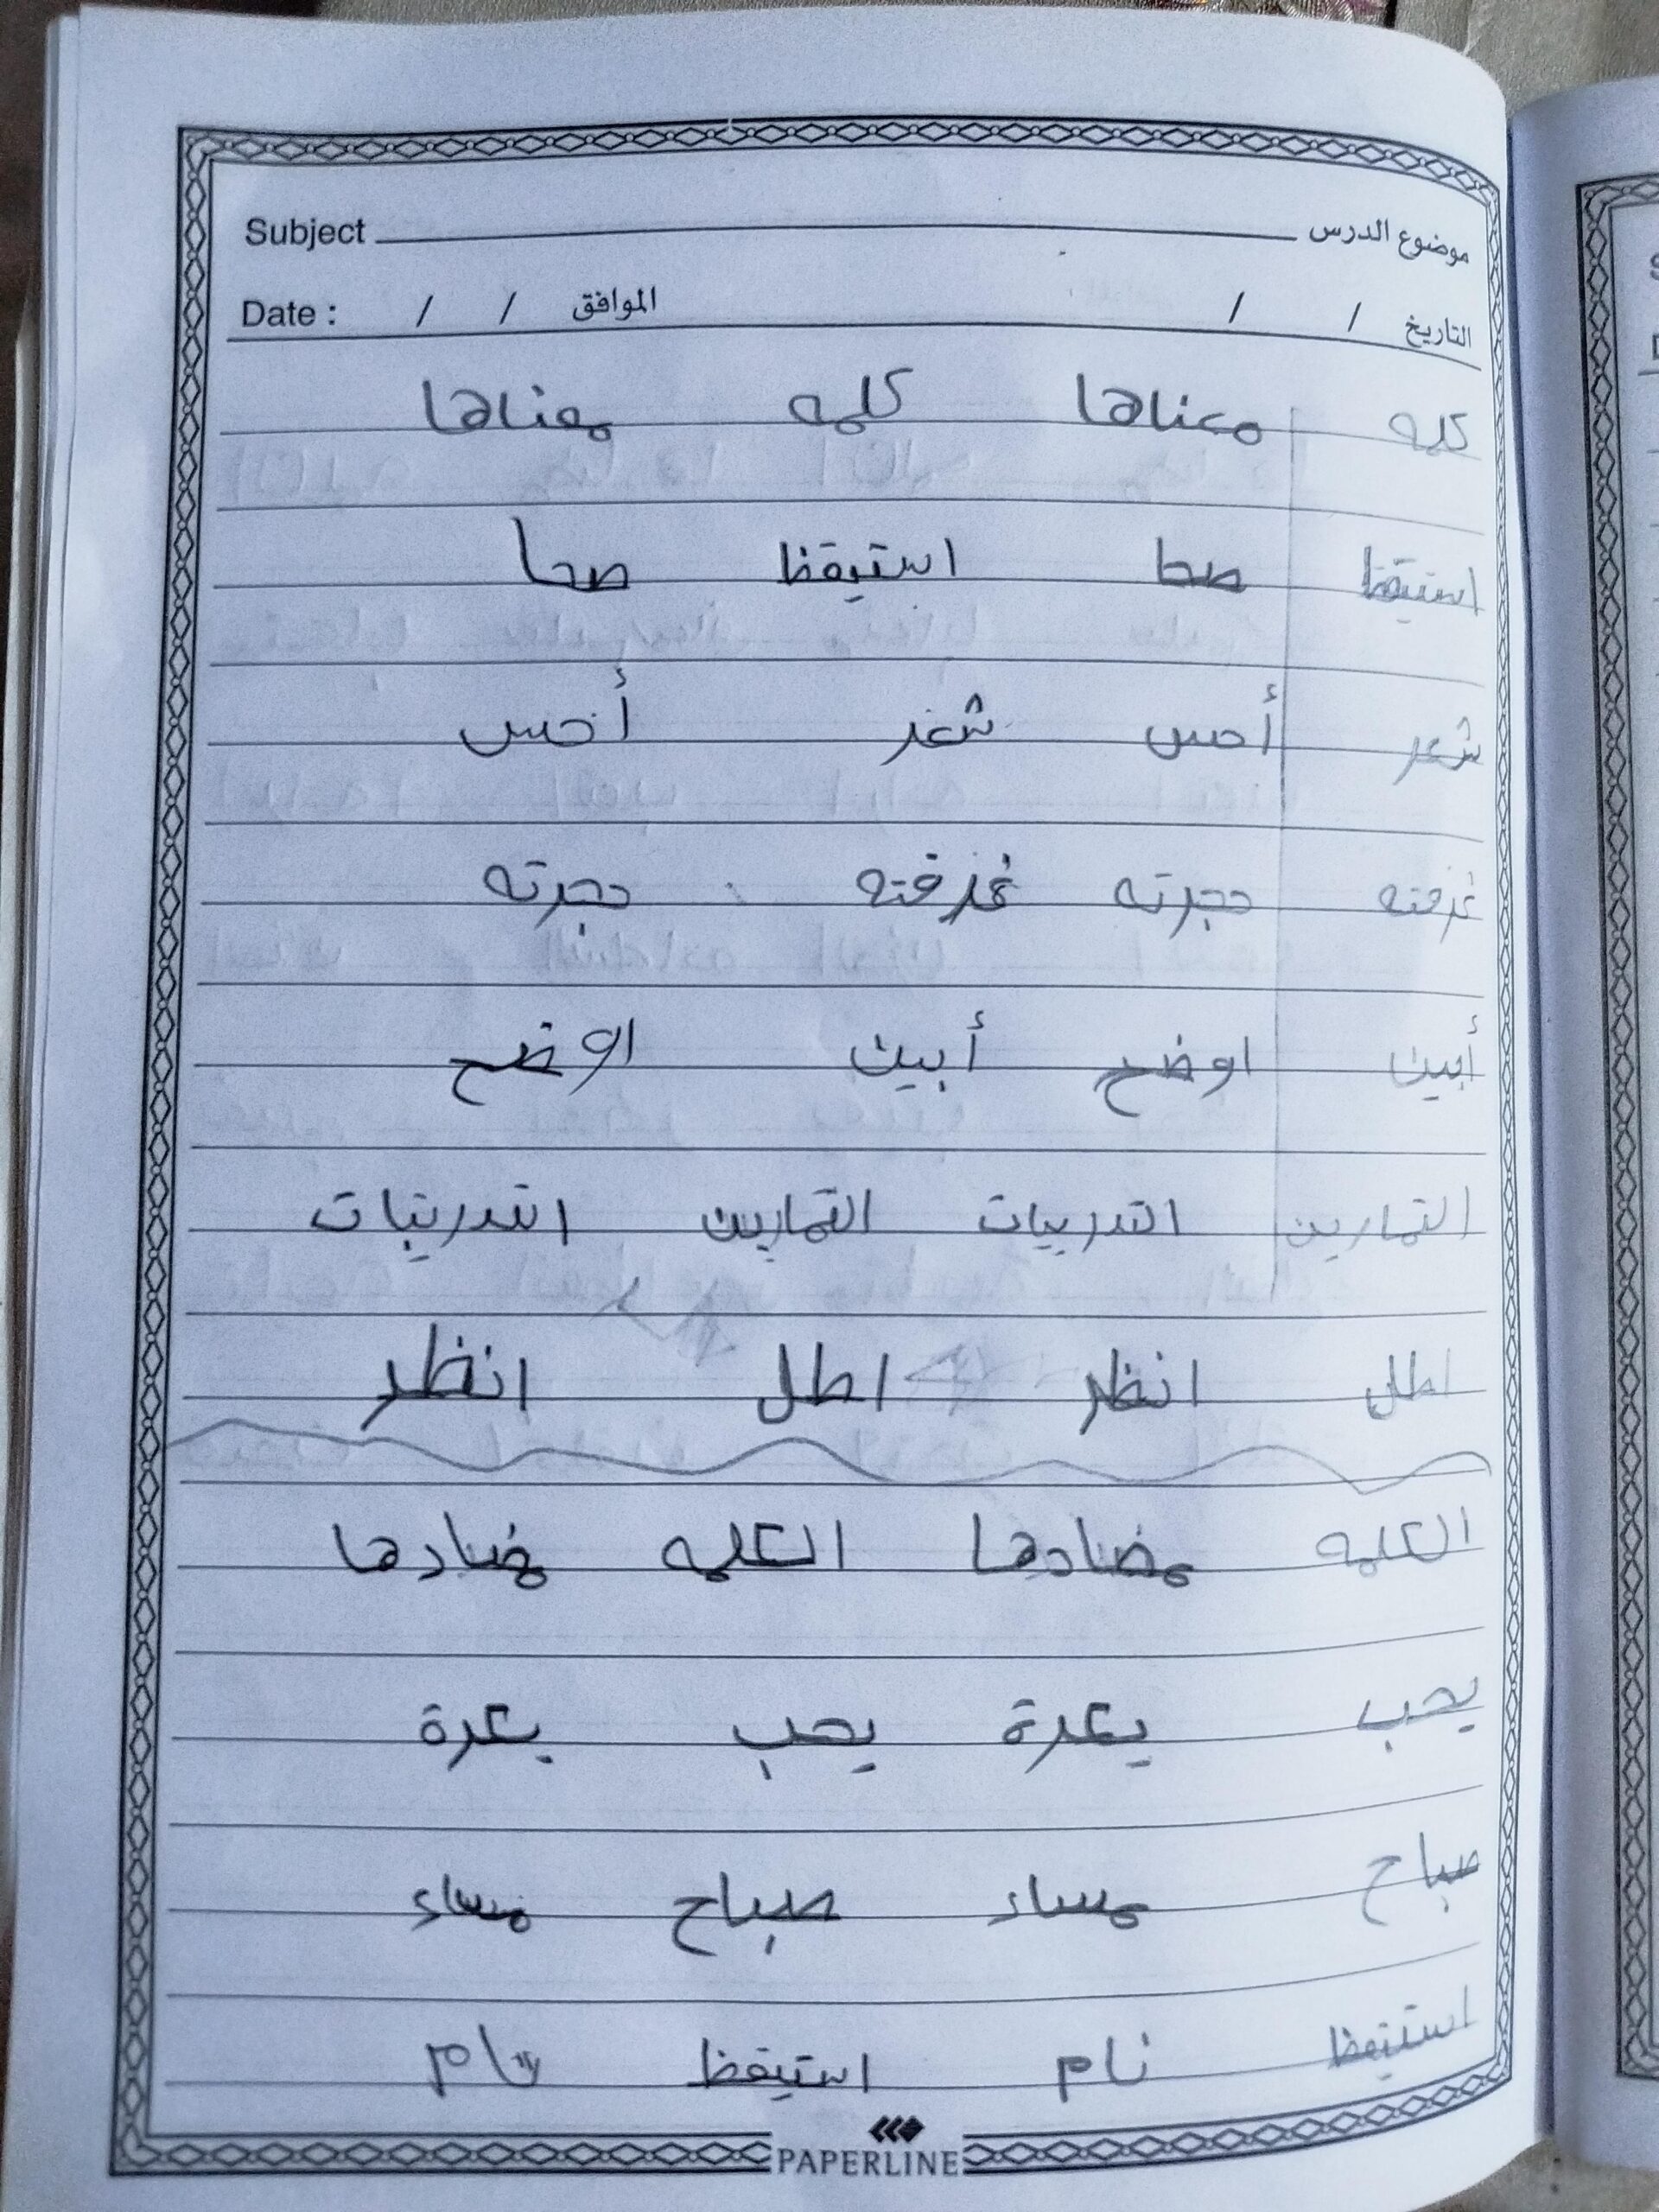 Subject موضوع الدرس
Date : / / الموافق / / التاريخ
كلمه معناها كلمه معناها
استيقظ صحا استيقظ صحا
شعر أحس شعر أحس
غرفته حجرته غرفته حجرته
أبين اوضح أبين اوضح
التمارين التدريبات التمارين التدريبات
اطل انظر اطل انظر
الكلمه مضادها الكلمه مضادها
يحب يكرة يحب يكرة
صباح مساء صباح مساء
استيقظ نام استيقظ نام
PAPERLINE